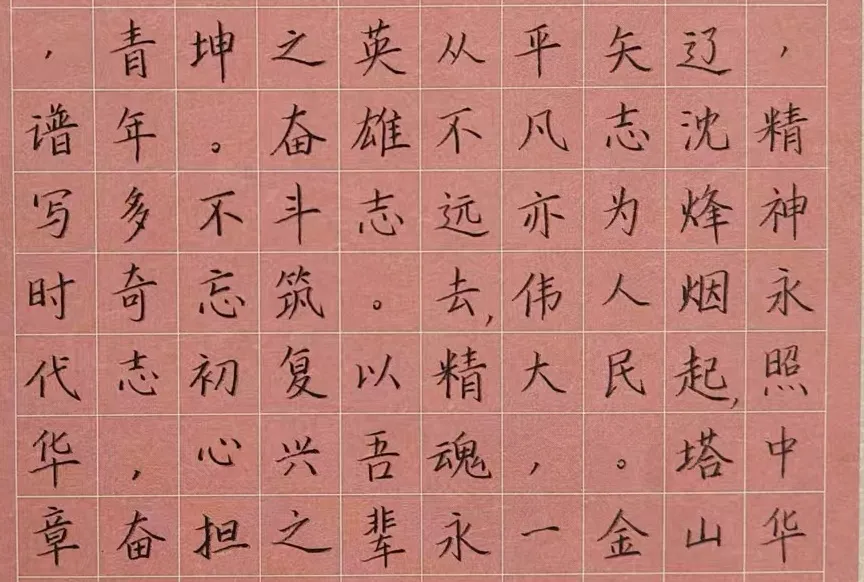 ，精神永照中华
辽沈烽烟起,塔山
矢志为人民。金
平凡亦伟大，一
从不远去,精魂永
英雄志。以吾辈
之奋斗筑复兴之
坤。不忘初心担
青年多奇志，奋
，谱写时代华章